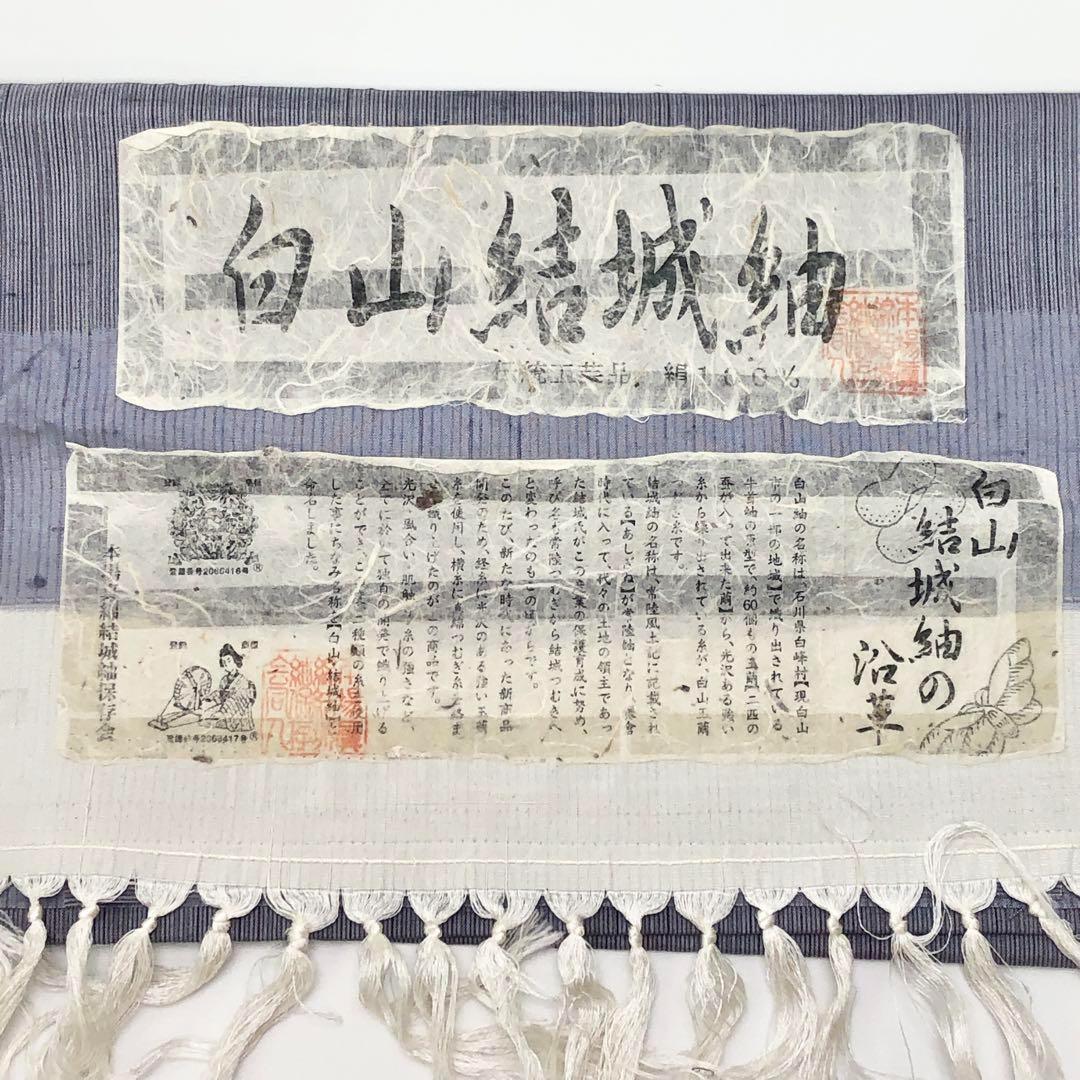 白山結城紬
伝統工芸品 絹100%
白山
結城紬の
沿革
白山紬の名称は、石川県白峰村【現白山
市の一部の地域】で織り出されている
牛首紬の原型で、約60個もの玉繭【二匹の
蚕が入って出来た繭】から、光沢ある強い
糸から繰り出されている糸が、白山玉繭
つむぎ糸です。
結城紬の名称は、常陸風土記に記載され
ている【あしぎぬ】が常陸紬となり、鎌倉
時代に入って、代々の土地の領主であっ
た結城氏がこの産業の保護育成に努め、
呼び名も常陸つむぎから結城つむぎへ
と変わったのもこの頃からです。
このたび、新たな時代に合った新商品
開発のため、経糸に光沢のある強い玉繭
糸を使用し、横糸に真綿つむぎ糸
織り上げたのが の商品です。
光沢、風合い、肌触り、糸の強さなど、
全てに於いて独自の開発で織り上げる
ことができ、 二種類の糸
した事にちなみ名称を【白山結城紬】と
命名しました。
登録 商標
登録番号2060416号®
登録 商標
登録番号2060417号®
本場 結城紬保存会